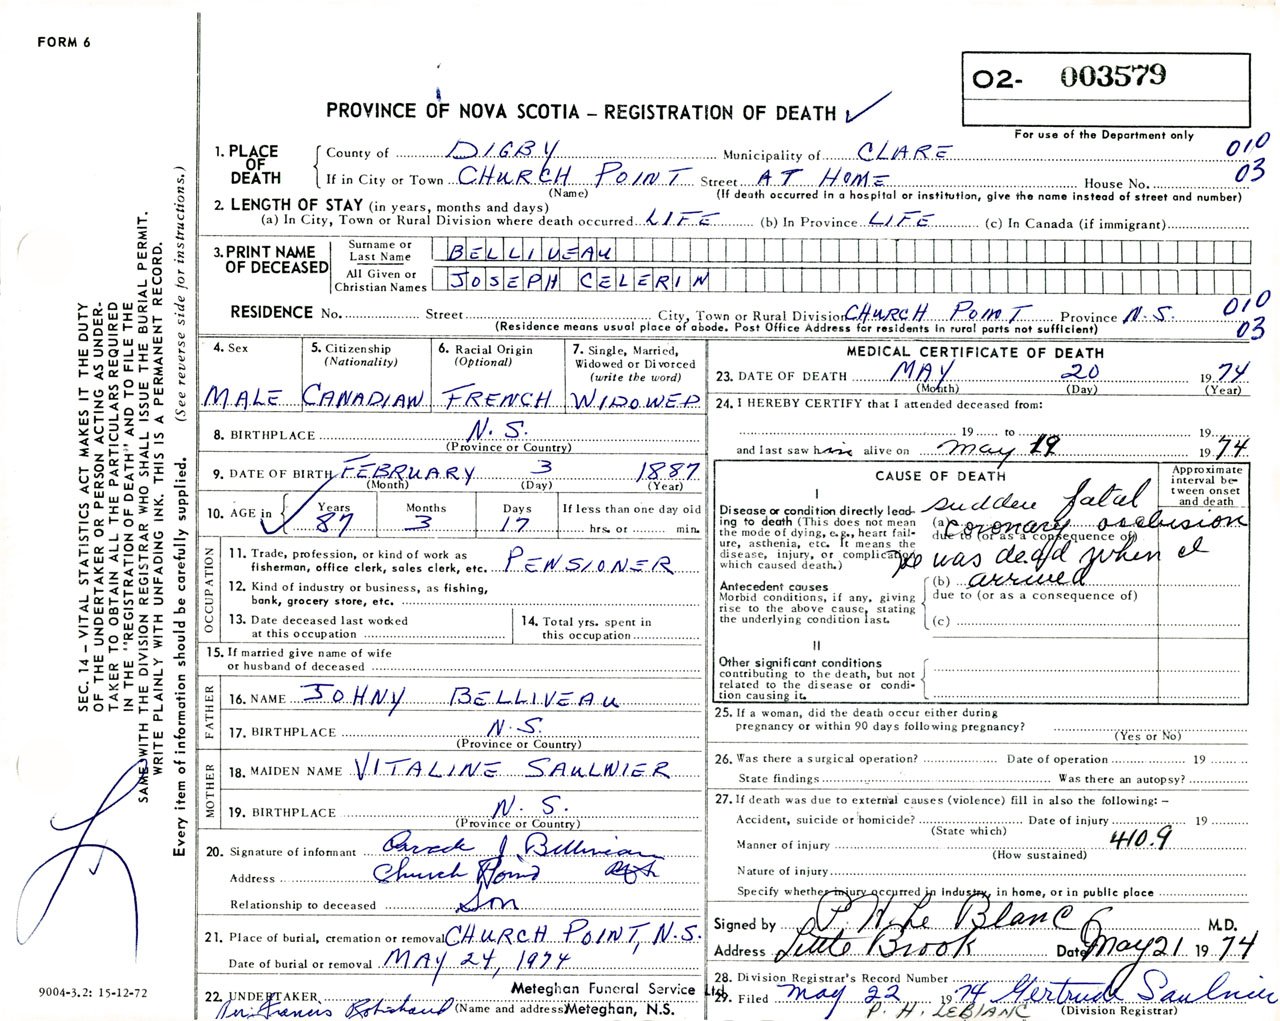 FORM 6
O2- 003579
PROVINCE OF NOVA SCOTIA – REGISTRATION OF DEATH ✓
For use of the Department only
1. PLACE OF DEATH
County of DIGBY Municipality of CLARE 010
If in City or Town CHURCH POINT Street AT HOME House No. 03
(Name) (If death occurred in a hospital or institution, give the name instead of street and number)
2. LENGTH OF STAY (in years, months and days)
(a) In City, Town or Rural Division where death occurred LIFE (b) In Province LIFE (c) In Canada (if immigrant)
3. PRINT NAME OF DECEASED
Surname or Last Name BELLIVEAU
All Given or Christian Names JOSEPH CELERIN
RESIDENCE No. Street City, Town or Rural Division CHURCH POINT Province N.S. 010
(Residence means usual place of abode. Post Office Address for residents in rural parts not sufficient) 03
4. Sex MALE
5. Citizenship (Nationality) CANADIAN
6. Racial Origin (Optional) FRENCH
7. Single, Married, Widowed or Divorced (write the word) WIDOWED
8. BIRTHPLACE N.S.
(Province or Country)
9. DATE OF BIRTH FEBRUARY 3 1887
(Month) (Day) (Year)
10. AGE in Years 87 Months 3 Days 17 If less than one day old hrs. or min.
OCCUPATION
11. Trade, profession, or kind of work as fisherman, office clerk, sales clerk, etc. PENSIONER
12. Kind of industry or business, as fishing, bank, grocery store, etc.
13. Date deceased last worked at this occupation
14. Total yrs. spent in this occupation
15. If married give name of wife or husband of deceased
FATHER
16. NAME JOHNY BELLIVEAU
17. BIRTHPLACE N.S.
(Province or Country)
MOTHER
18. MAIDEN NAME VITALINE SAULNIER
19. BIRTHPLACE N.S.
(Province or Country)
20. Signature of informant J Belliveau
Address Church Point
Relationship to deceased Son
21. Place of burial, cremation or removal CHURCH POINT, N.S.
Date of burial or removal MAY 24, 1974
Meteghan Funeral Service Ltd.
22. UNDERTAKER (Name and address) Meteghan, N.S.
MEDICAL CERTIFICATE OF DEATH
23. DATE OF DEATH MAY 20 1974
(Month) (Day) (Year)
24. I HEREBY CERTIFY that I attended deceased from:
19 to 19
and last saw him alive on May 19 1974
CAUSE OF DEATH
Approximate interval between onset and death
I
Disease or condition directly leading to death (This does not mean the mode of dying, e.g., heart failure, asthenia, etc. It means the disease, injury, or complication which caused death.)
sudden fatal
(a) coronary occlusion
due to (or as a consequence of)
He was dead when I
(b) arrived
due to (or as a consequence of)
(c)
Antecedent causes
Morbid conditions, if any, giving rise to the above cause, stating the underlying condition last.
II
Other significant conditions
contributing to the death, but not related to the disease or condition causing it.
25. If a woman, did the death occur either during pregnancy or within 90 days following pregnancy?
(Yes or No)
26. Was there a surgical operation? Date of operation 19
State findings Was there an autopsy?
27. If death was due to external causes (violence) fill in also the following: –
Accident, suicide or homicide? Date of injury 19
(State which) 410.9
Manner of injury
(How sustained)
Nature of injury
Specify whether injury occurred in industry, in home, or in public place
Signed by P. H. Le Blanc M.D.
Address Little Brook Date May 21 1974
28. Division Registrar's Record Number
29. Filed May 22 1974 Gertrude Saulnier
P. H. LEBLANC (Division Registrar)
SEC. 14 – VITAL STATISTICS ACT MAKES IT THE DUTY
OF THE UNDERTAKER OR PERSON ACTING AS UNDER-
TAKER TO OBTAIN ALL THE PARTICULARS REQUIRED
IN THE "REGISTRATION OF DEATH" AND TO FILE THE
SAME WITH THE DIVISION REGISTRAR WHO SHALL ISSUE THE BURIAL PERMIT.
WRITE PLAINLY WITH UNFADING INK. THIS IS A PERMANENT RECORD.
Every item of information should be carefully supplied. (See reverse side for instructions.)
9004-3.2: 15-12-72